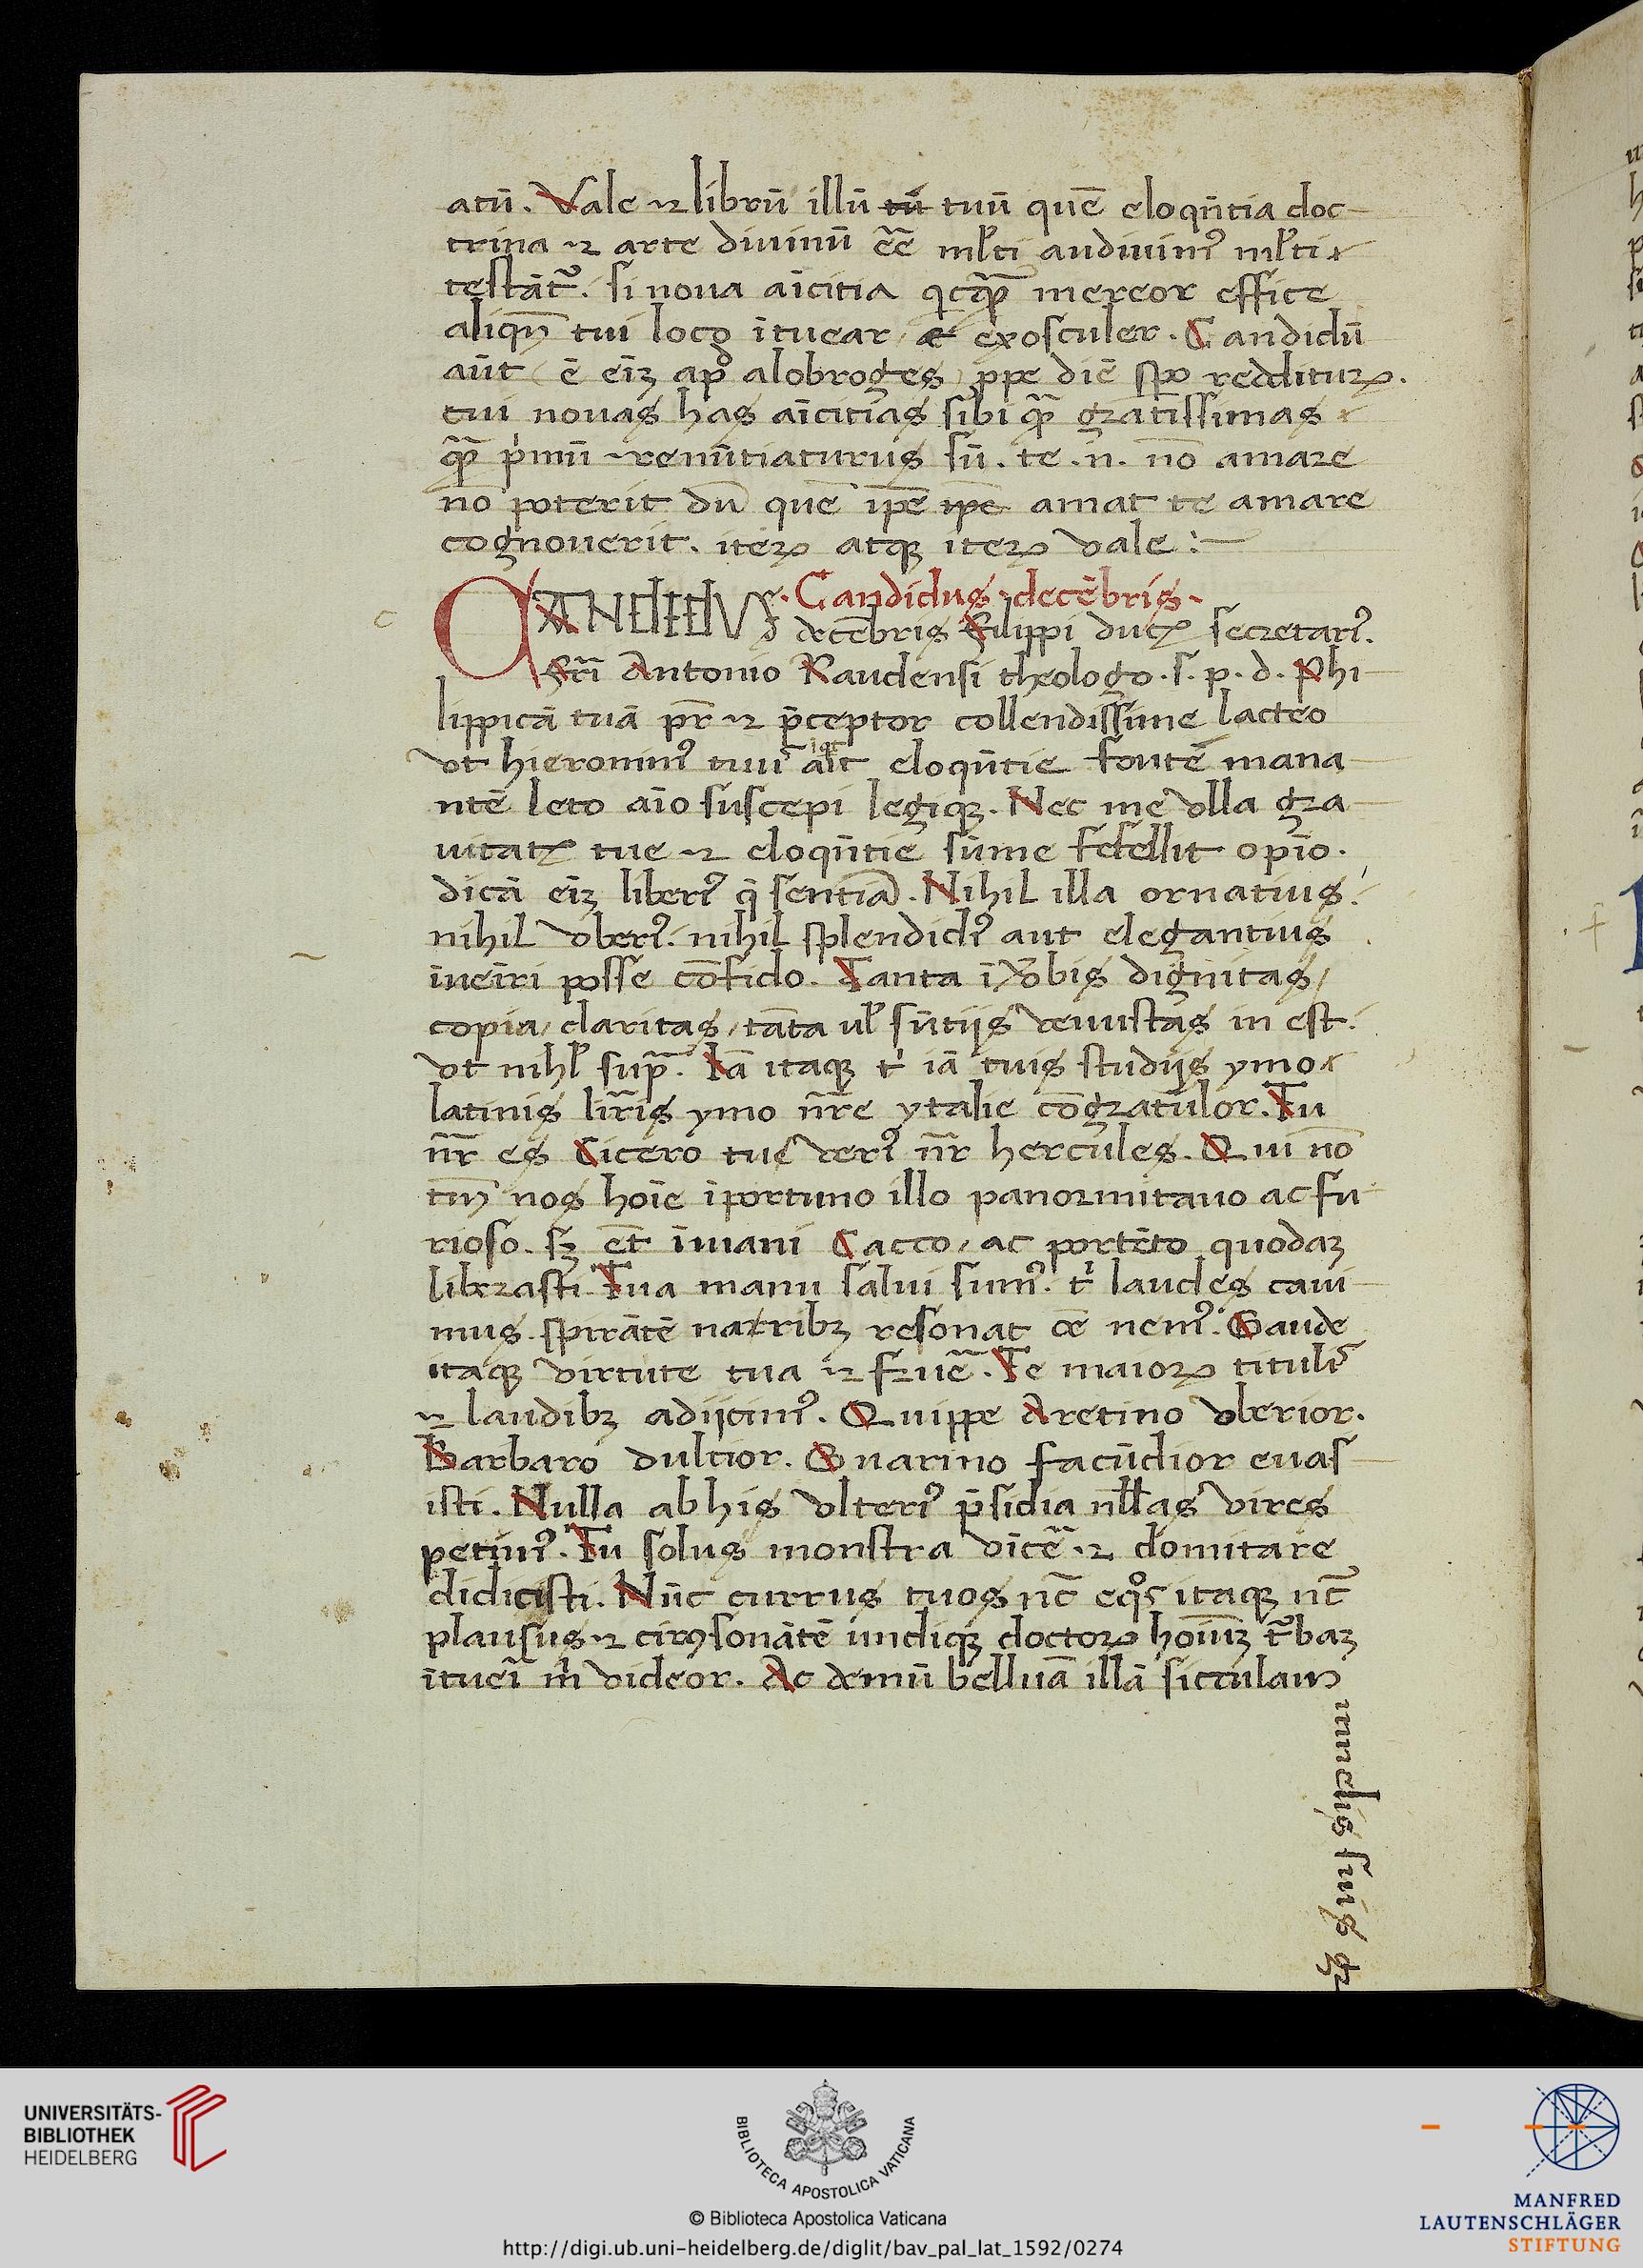 atū. Vale ⁊ librū illū tū tuū quē eloqūtia doc-
trina ⁊ arte diuinū eē ml'ti audiuimꝰ ml'ti
testāt᷑. si noua aīcitia qcq̄ mereor effice
aliqn̄ tui loco ītuear et exosculer. Candidū
aūt ē eīꝫ apd alobroges ꝓpe diē spo rediturꝝ.
tui nouas has aīcitias sibi q̄ gratissimas
q̄ pimū renūtiaturus sū. te .n. nō amare
nō poterit dū quē ipē ipē amat te amare
cognouerit. iteꝝ atqꝫ iteꝝ vale :—
CANDIDVS · Candidus · decēbris ·
decēbris Filippi ducꝭ secretariꝰ.
Frī Antonio Raudensi theologo. s. p. d. Phi-
lippicā tuā pr̄ ⁊ p̄ceptor collendissime lacteo
vt hieronimꝰ tuus ait eloqūtie fontē mana-
ntē leto aīo suscepi legiqꝫ. Nec me vlla gra-
uitatꝭ tue ⁊ eloqūtie sūme fefellit opīo.
dicā eīꝫ liberiꝰ q̇ sentiā. Nihil illa ornatius.
nihil vberiꝰ. nihil splendidiꝰ aut elegantius
īueīri posse cōfido. Tanta ī vobis dignitas,
copia, claritas, tāta ul' sn̄tijs venustas in est.
vt nihl' sup̄. Iā itaqꝫ t' iā tuis studijs ymo
latinis lr̄is ymo nr̄e ytalie cōgratulor. Tu
nr̄ es Cicero tu veriꝰ nr̄ hercules. Qui nō
tm̄ nos hoīe īportuno illo panormitano ac fu-
rioso. sꝫ ēt īmani Cacco, ac portēto quodaꝫ
librasti. Tua manu salui sumꝰ. t' laudes cani-
mus. spirātē naribꝫ resonat oē nemꝰ. Gaude
itaqꝫ virtute tua ⁊ fruē. Te maioꝝ titulis
⁊ laudibꝫ adijcimꝰ. Quippe Aretino vberior.
Barbaro dulcior. Guarino facūdior euas-
isti. Nulla ab his vlteriꝰ p̄sidia nllas vires
petimꝰ. Tu solus monstra vīce ⁊ domitare
didicisti. Nūc currus tuos nc̄ eqos itaqꝫ nc̄
plausus ⁊ cirꝯsonātē undiqꝫ doctoꝝ hoīuꝫ t᷑baꝫ
ītueī m' videor. Ac demū belluā illā siculam
UNIVERSITÄTS-
BIBLIOTHEK
HEIDELBERG
BIBLIOTECA APOSTOLICA VATICANA
© Biblioteca Apostolica Vaticana
http://digi.ub.uni-heidelberg.de/diglit/bav_pal_lat_1592/0274
MANFRED
LAUTENSCHLÄGER
STIFTUNG